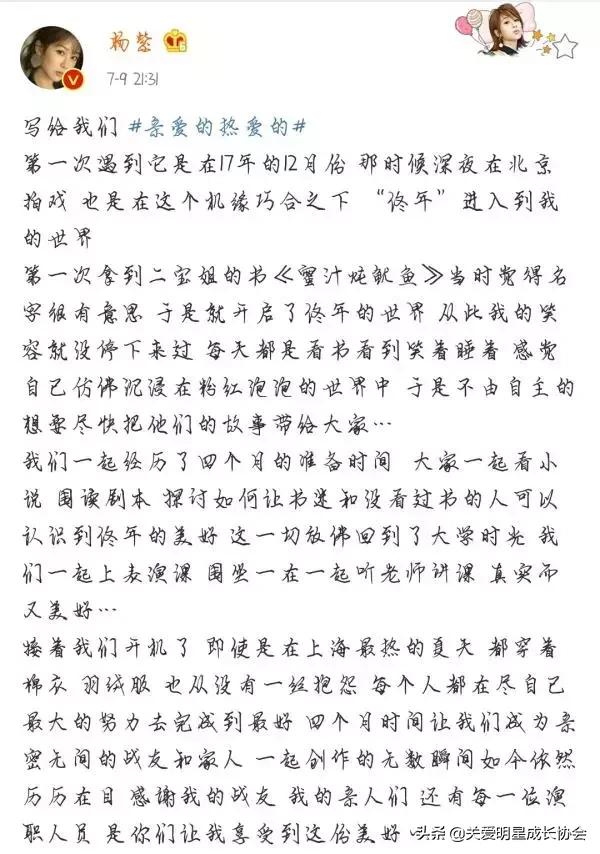 杨紫
7-9 21:31
写给我们 #亲爱的热爱的#
第一次遇到它是在17年的12月份 那时候深夜在北京
拍戏 也是在这个机缘巧合之下 “佟年”进入到我
的世界
第一次拿到二宝姐的书《蜜汁炖鱿鱼》当时觉得名
字很有意思 于是就开启了佟年的世界 从此我的笑
容就没停下来过 每天都是看书看到笑着睡着 感觉
自己仿佛沉浸在粉红泡泡的世界中 于是不由自主的
想要尽快把他们的故事带给大家…
我们一起经历了四个月的准备时间 大家一起看小
说 围读剧本 探讨如何让书迷和没看过书的人可以
认识到佟年的美好 这一切放佛回到了大学时光 我
们一起上表演课 围坐一在一起听老师讲课 真实而
又美好…
接着我们开机了 即使是在上海最热的夏天 都穿着
棉衣 羽绒服 也从没有一丝抱怨 每个人都在尽自己
最大的努力去完成到最好 四个月时间让我们成为亲
密无间的战友和家人 一起创作的无数瞬间如今依然
历历在目 感谢我的战友 我的亲人们 还有每一位演
职人员 是你们让我享受到这份美好
头条 @关爱明星成长协会